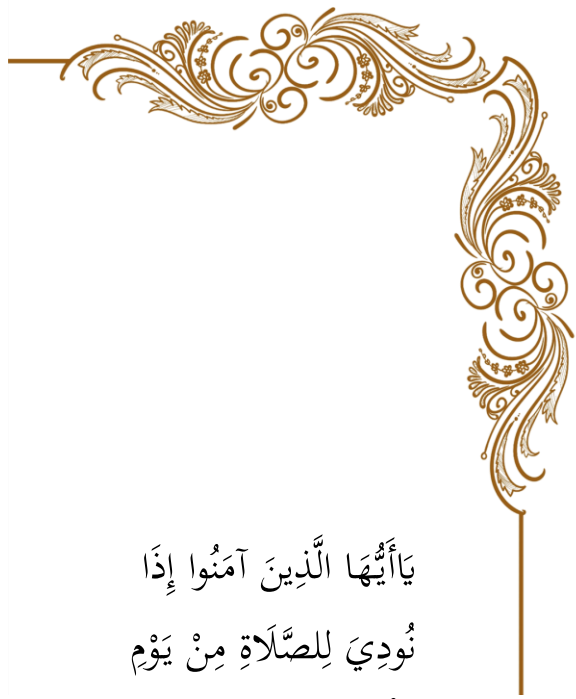 يَاأَيُّهَا الَّذِينَ آمَنُوا إِذَا
نُودِيَ لِلصَّلَاةِ مِنْ يَوْمِ